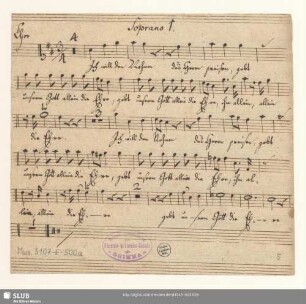 Soprano 1.
Chor
4
Ich will den Nahmen des Herrn preisen, gebt
unserm Gott allein die Ehre, gebt unserm Gott allein die Ehre, ihr allein, allein
die Ehre. Ich will den Nahmen des Herrn preisen, gebt
unserm Gott allein die Ehre, gebt unserm Gott allein die Ehre, ihr al-
lein, allein die Eh- - re gebt unserm Gott die Eh- - re
Mus. 3107-E-500a
GRIMMA
SLUB